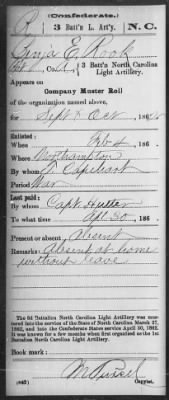 (Confederate.)
R 3 Batt'n L. Art'y. N.C.
Benja E. Rook
Pvt, Co. A, 3 Batt'n North Carolina
Light Artillery.
Appears on
Company Muster Roll
of the organization named above,
for Sept & Oct, 1862.
Enlisted:
When Feb 4, 186 .
Where Northampton
By whom W. Capehart
Period War
Last paid:
By whom Capt. Sutton
To what time Apl 30, 186 .
Present or absent Absent
Remarks: Absent at home
without leave
The 3d Battalion North Carolina Light Artillery was mus-
tered into the service of the State of North Carolina March 27,
1862, and into the Confederate States service April 30, 1862.
It was known for a few months when first organized as the 1st
Battalion North Carolina Light Artillery.
Book mark:
(642) Copyist.